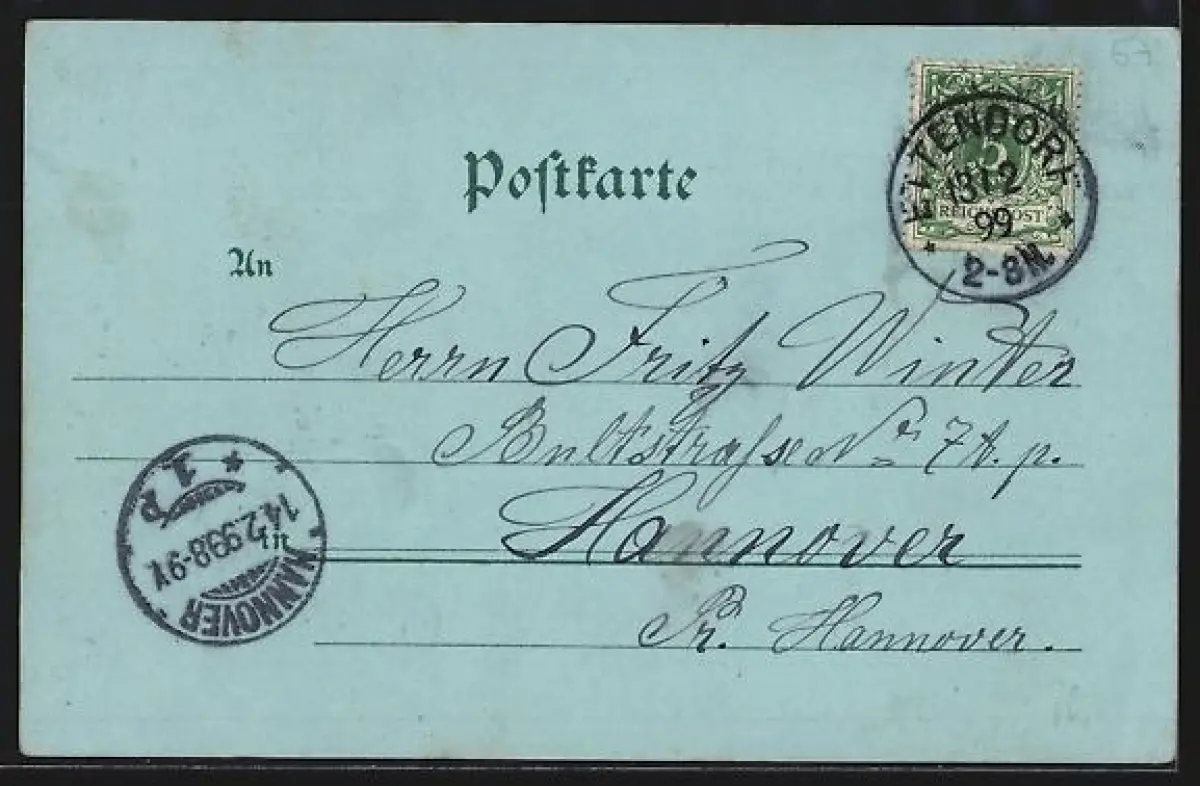 57
Postkarte
5
REICHSPOST
TENDORF
13 12
99
2-8N.
An
Herrn Fritz Winter
Bultstraſse Nr 7A. p.
in Hannover
Pr. Hannover.
HANNOVER
14.2.99.8-9V.
1 p